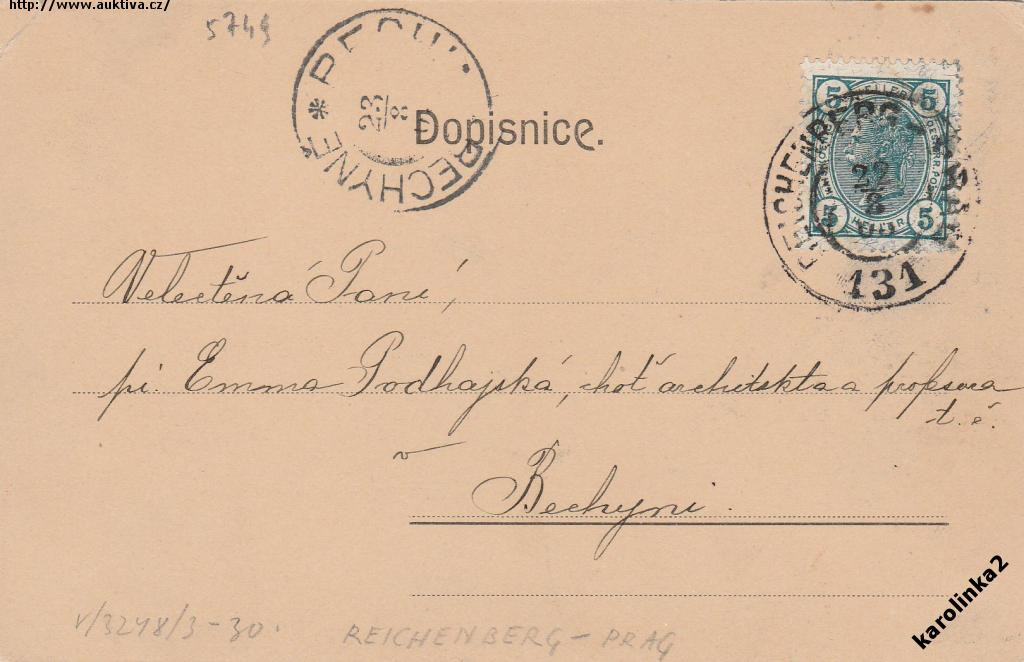 http://www.auktiva.cz/
5749
BECHYNĚ * BECHYNĚ
23/8
Dopisnice.
5 5
HELLER
5 5
HELLER
REICHENBERG-PRAG
22
8
131
Velectěná Paní,
pí. Emma Podhajská, choť architekta a profesora
t. č.
v
Bechyni.
v/3248/3-30.
REICHENBERG - PRAG
karolinka2